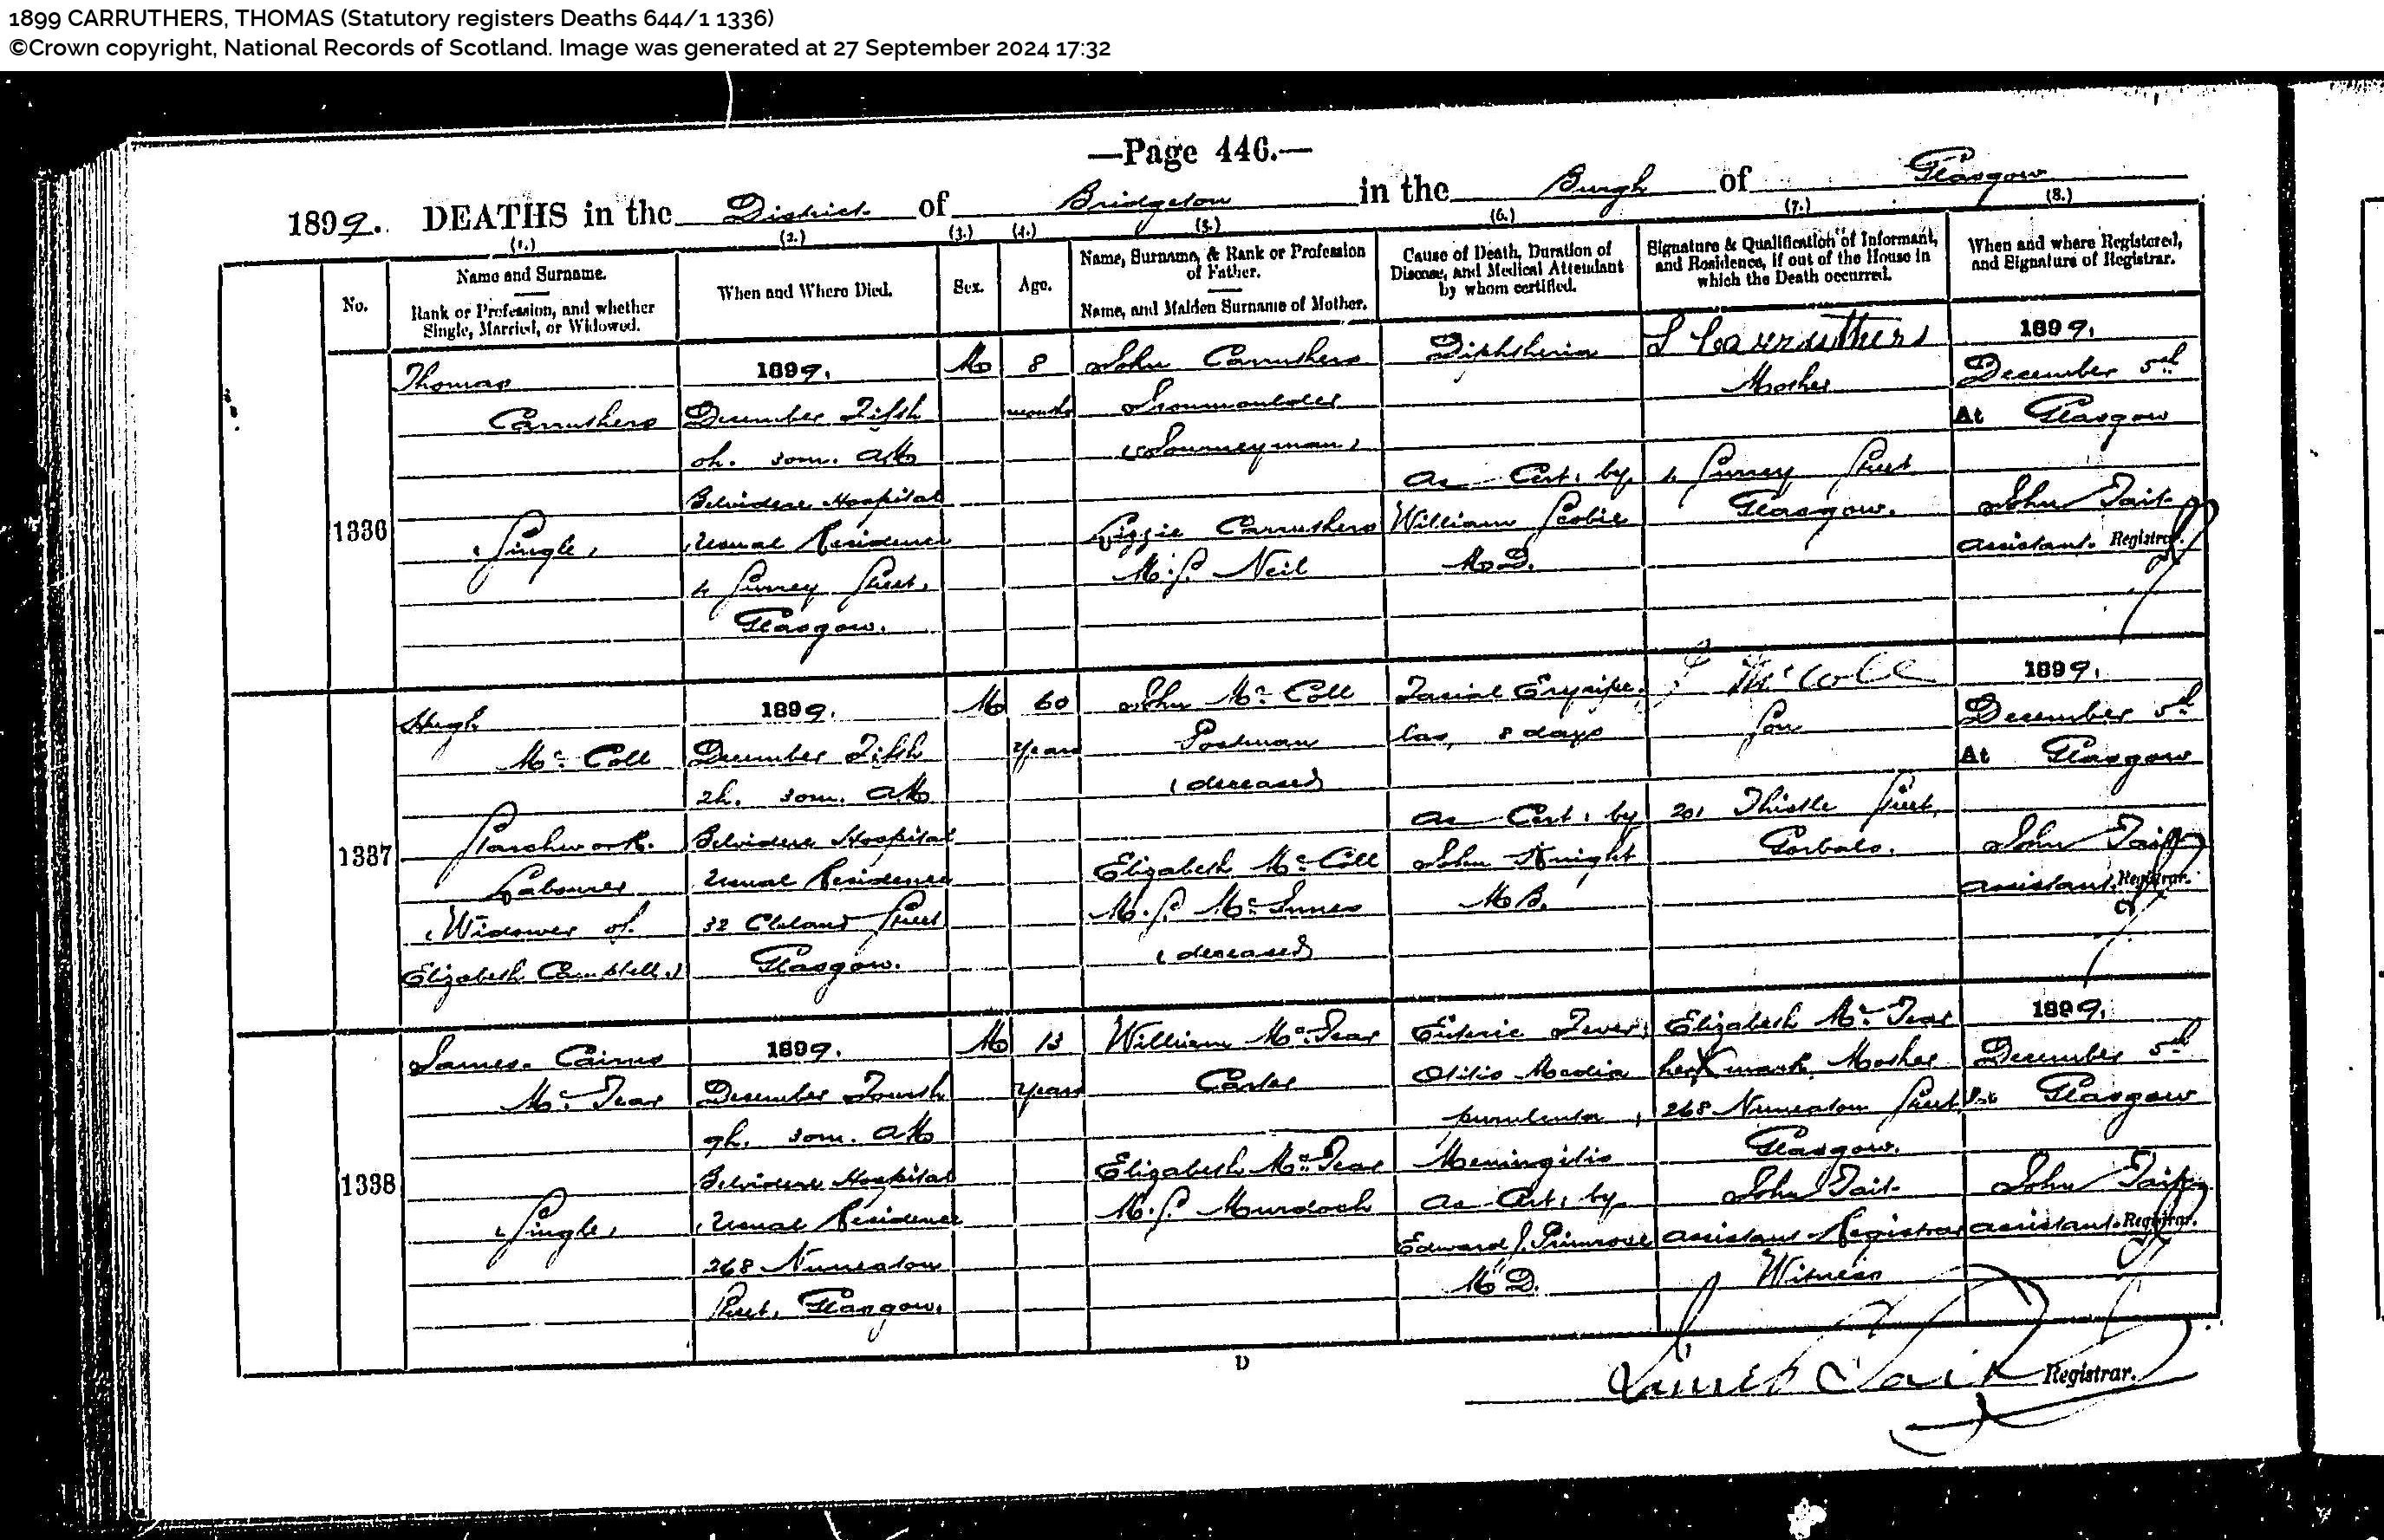 1899 CARRUTHERS, THOMAS (Statutory registers Deaths 644/1 1336)
©Crown copyright, National Records of Scotland. Image was generated at 27 September 2024 17:32
—Page 446.—
1899. DEATHS in the District of Bridgeton in the Burgh of Glasgow
(1.) (2.) (3.) (4.) (5.) (6.) (7.) (8.)
No.
Name and Surname.
Rank or Profession, and whether
Single, Married, or Widowed.
When and Where Died.
Sex.
Age.
Name, Surname, & Rank or Profession
of Father.
Name, and Maiden Surname of Mother.
Cause of Death, Duration of
Disease, and Medical Attendant
by whom certified.
Signature & Qualification of Informant,
and Residence, if out of the House in
which the Death occurred.
When and where Registered,
and Signature of Registrar.
1336
Thomas
Carruthers
(Single)
1899.
December Fifth
0h. 30m. AM
Belvidere Hospital
(Usual Residence
4 Surrey Street,
Glasgow.
M
8
months
John Carruthers
Ironmoulder
(Journeyman)
Lizzie Carruthers
M.S. Neil
Diphtheria
As Cert. by
William Scobie
M.D.
L Carruthers
Mother
4 Surrey Street
Glasgow.
1899.
December 5th
At Glasgow
John Tait
Assistant Registrar.
1337
Hugh
Mc Coll
Starchwork
Labourer
(Widower of
Elizabeth Campbell)
1899.
December Fifth
2h. 30m. AM
Belvidere Hospital
Usual Residence
32 Cleland Street
Glasgow.
M
60
years
John Mc Coll
Postman
(deceased)
Elizabeth Mc Coll
M.S. Mc Innes
(deceased)
Facial Erysipe-
las, 8 days
As Cert. by
John Knight
M.B.
Mc Coll
Son
201 Thistle Street,
Gorbals.
1899.
December 5th
At Glasgow
John Tait
Assistant Registrar.
1338
James Cairns
Mc Tear
(Single)
1899.
December Fourth
9h. 30m. AM
Belvidere Hospital
(Usual Residence
268 Nuneaton
Street, Glasgow.
M
13
years
William McTear
Carter
Elizabeth McTear
M.S. Murdoch
Enteric Fever,
Otitis Media
purulenta,
Meningitis
As Cert. by
Edward J. Primrose
M.D.
Elizabeth Mc Tear
her X mark, Mother
268 Nuneaton Street
Glasgow.
John Tait
Assistant Registrar
Witness
1899.
December 5th
At Glasgow
John Tait
Assistant Registrar.
D
James Tait Registrar.